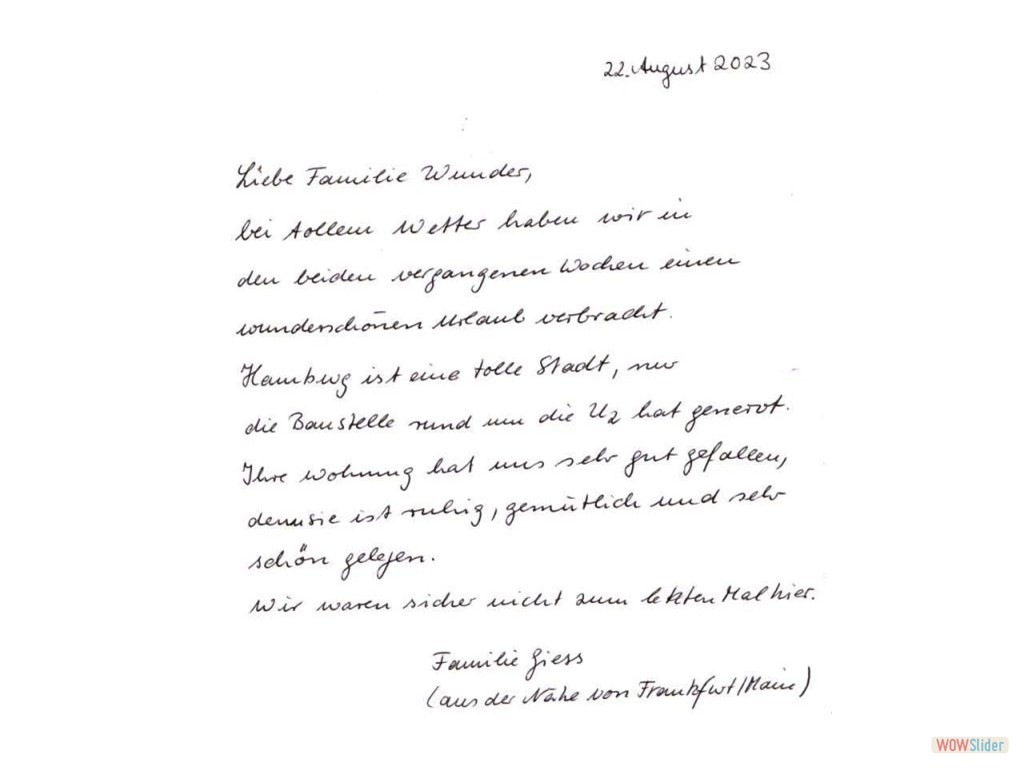 22. August 2023
Liebe Familie Wunder,
bei tollem Wetter haben wir in
den beiden vergangenen Wochen einen
wunderschönen Urlaub verbracht.
Hamburg ist eine tolle Stadt, nur
die Baustelle rund um die U2 hat genervt.
Ihre Wohnung hat uns sehr gut gefallen,
denn sie ist ruhig, gemütlich und sehr
schön gelegen.
Wir waren sicher nicht zum letzten Mal hier.
Familie Giess
(aus der Nähe von Frankfurt/Main)
WOWSlider